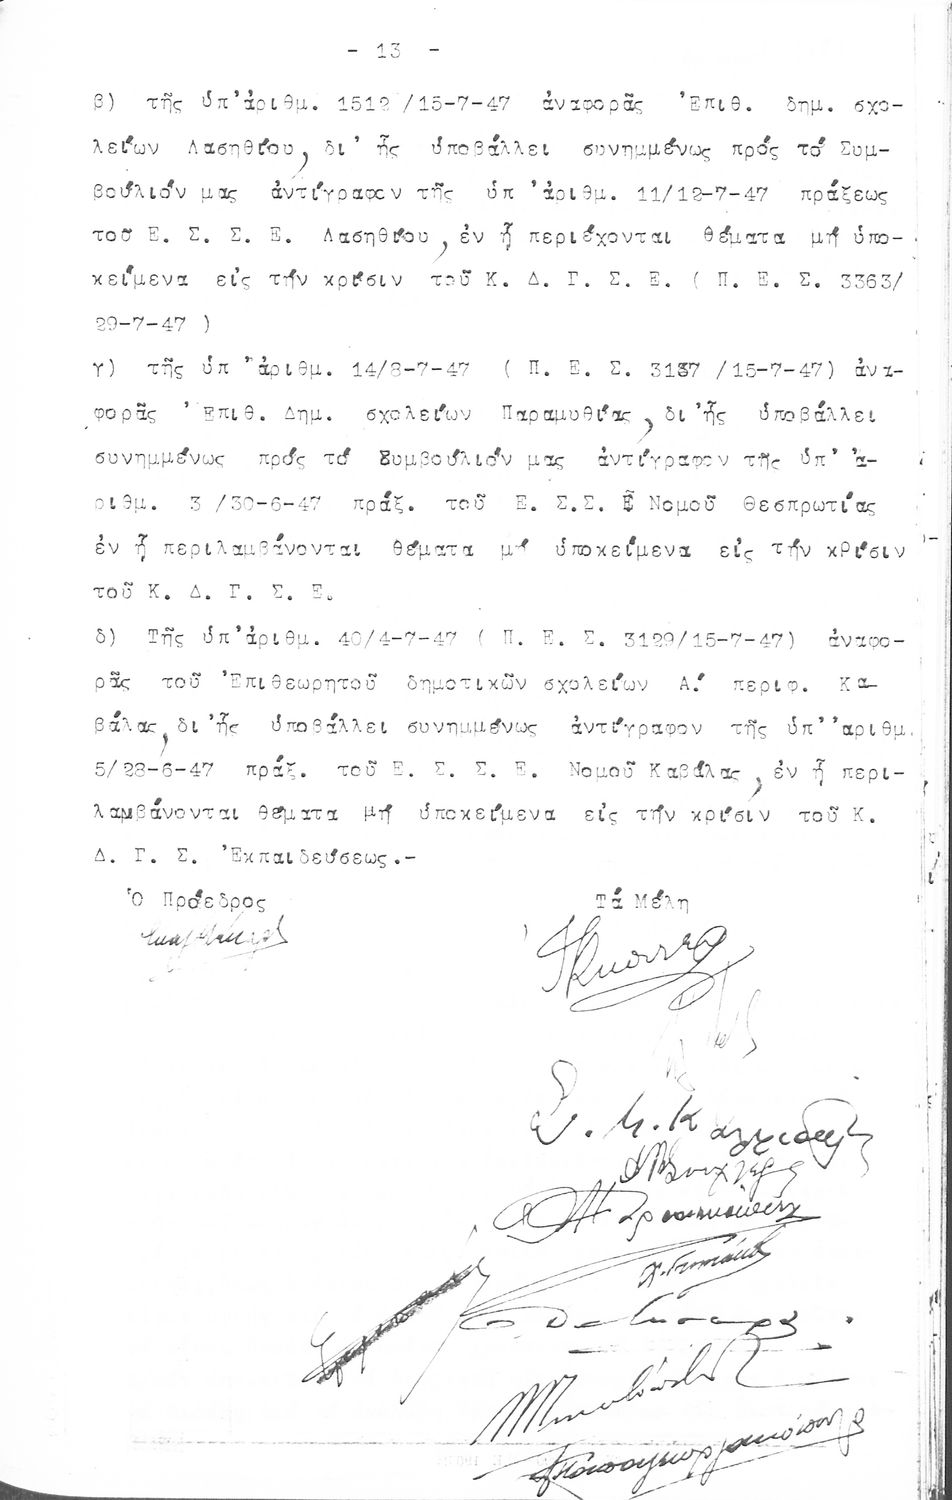 - 13 -
β) τῆς ὑπ'ἀριθμ. 1512 /15-7-47 ἀναφορᾶς 'Επιθ. δημ. σχο-
λείων Λασηθίου, δι' ἧς ὑποβάλλει συνημμένως πρός τό Συμ-
βούλιόν μας ἀντίγραφον τῆς ὑπ 'ἀριθμ. 11/12-7-47 πράξεως
τοῦ Ε. Σ. Σ. Ε. Λασηθίου, ἐν ᾗ περιέχονται θέματα μή ὑπο-
κείμενα εἰς τήν κρίσιν τοῦ Κ. Δ. Γ. Σ. Ε. ( Π. Ε. Σ. 3363/
29-7-47 )
γ) τῆς ὑπ 'ἀριθμ. 14/8-7-47 ( Π. Ε. Σ. 3137 /15-7-47) ἀνα-
φορᾶς 'Επιθ. Δημ. σχολείων Παραμυθίας, δι'ἧς ὑποβάλλει
συνημμένως πρός τό Συμβούλιόν μας ἀντίγραφον τῆς ὑπ' ἀ-
ριθμ. 3 /30-6-47 πράξ. τοῦ Ε. Σ.Σ. Ε Νομοῦ Θεσπρωτίας
ἐν ᾗ περιλαμβάνονται θέματα μή ὑποκείμενα εἰς τήν κΡίσιν
τοῦ Κ. Δ. Γ. Σ. Ε.
δ) Τῆς ὑπ'ἀριθμ. 40/4-7-47 ( Π. Ε. Σ. 3129/15-7-47) ἀναφο-
ρᾶς τοῦ 'Επιθεωρητοῦ δημοτικῶν σχολείων Α.' περιφ. Κα-
βάλας, δι'ἧς ὑποβάλλει συνημμένως ἀντίγραφον τῆς ὑπ''αριθμ.
5/28-6-47 πράξ. τοῦ Ε. Σ. Σ. Ε. Νομοῦ Καβάλας, ἐν ᾗ περι-
λαμβάνονται θέματα μή ὑποκείμενα εἰς τήν κρίσιν τοῦ Κ.
Δ. Γ. Σ. 'Εκπαιδεύσεως.-
'Ο Πρόεδρος Τά Μέλη